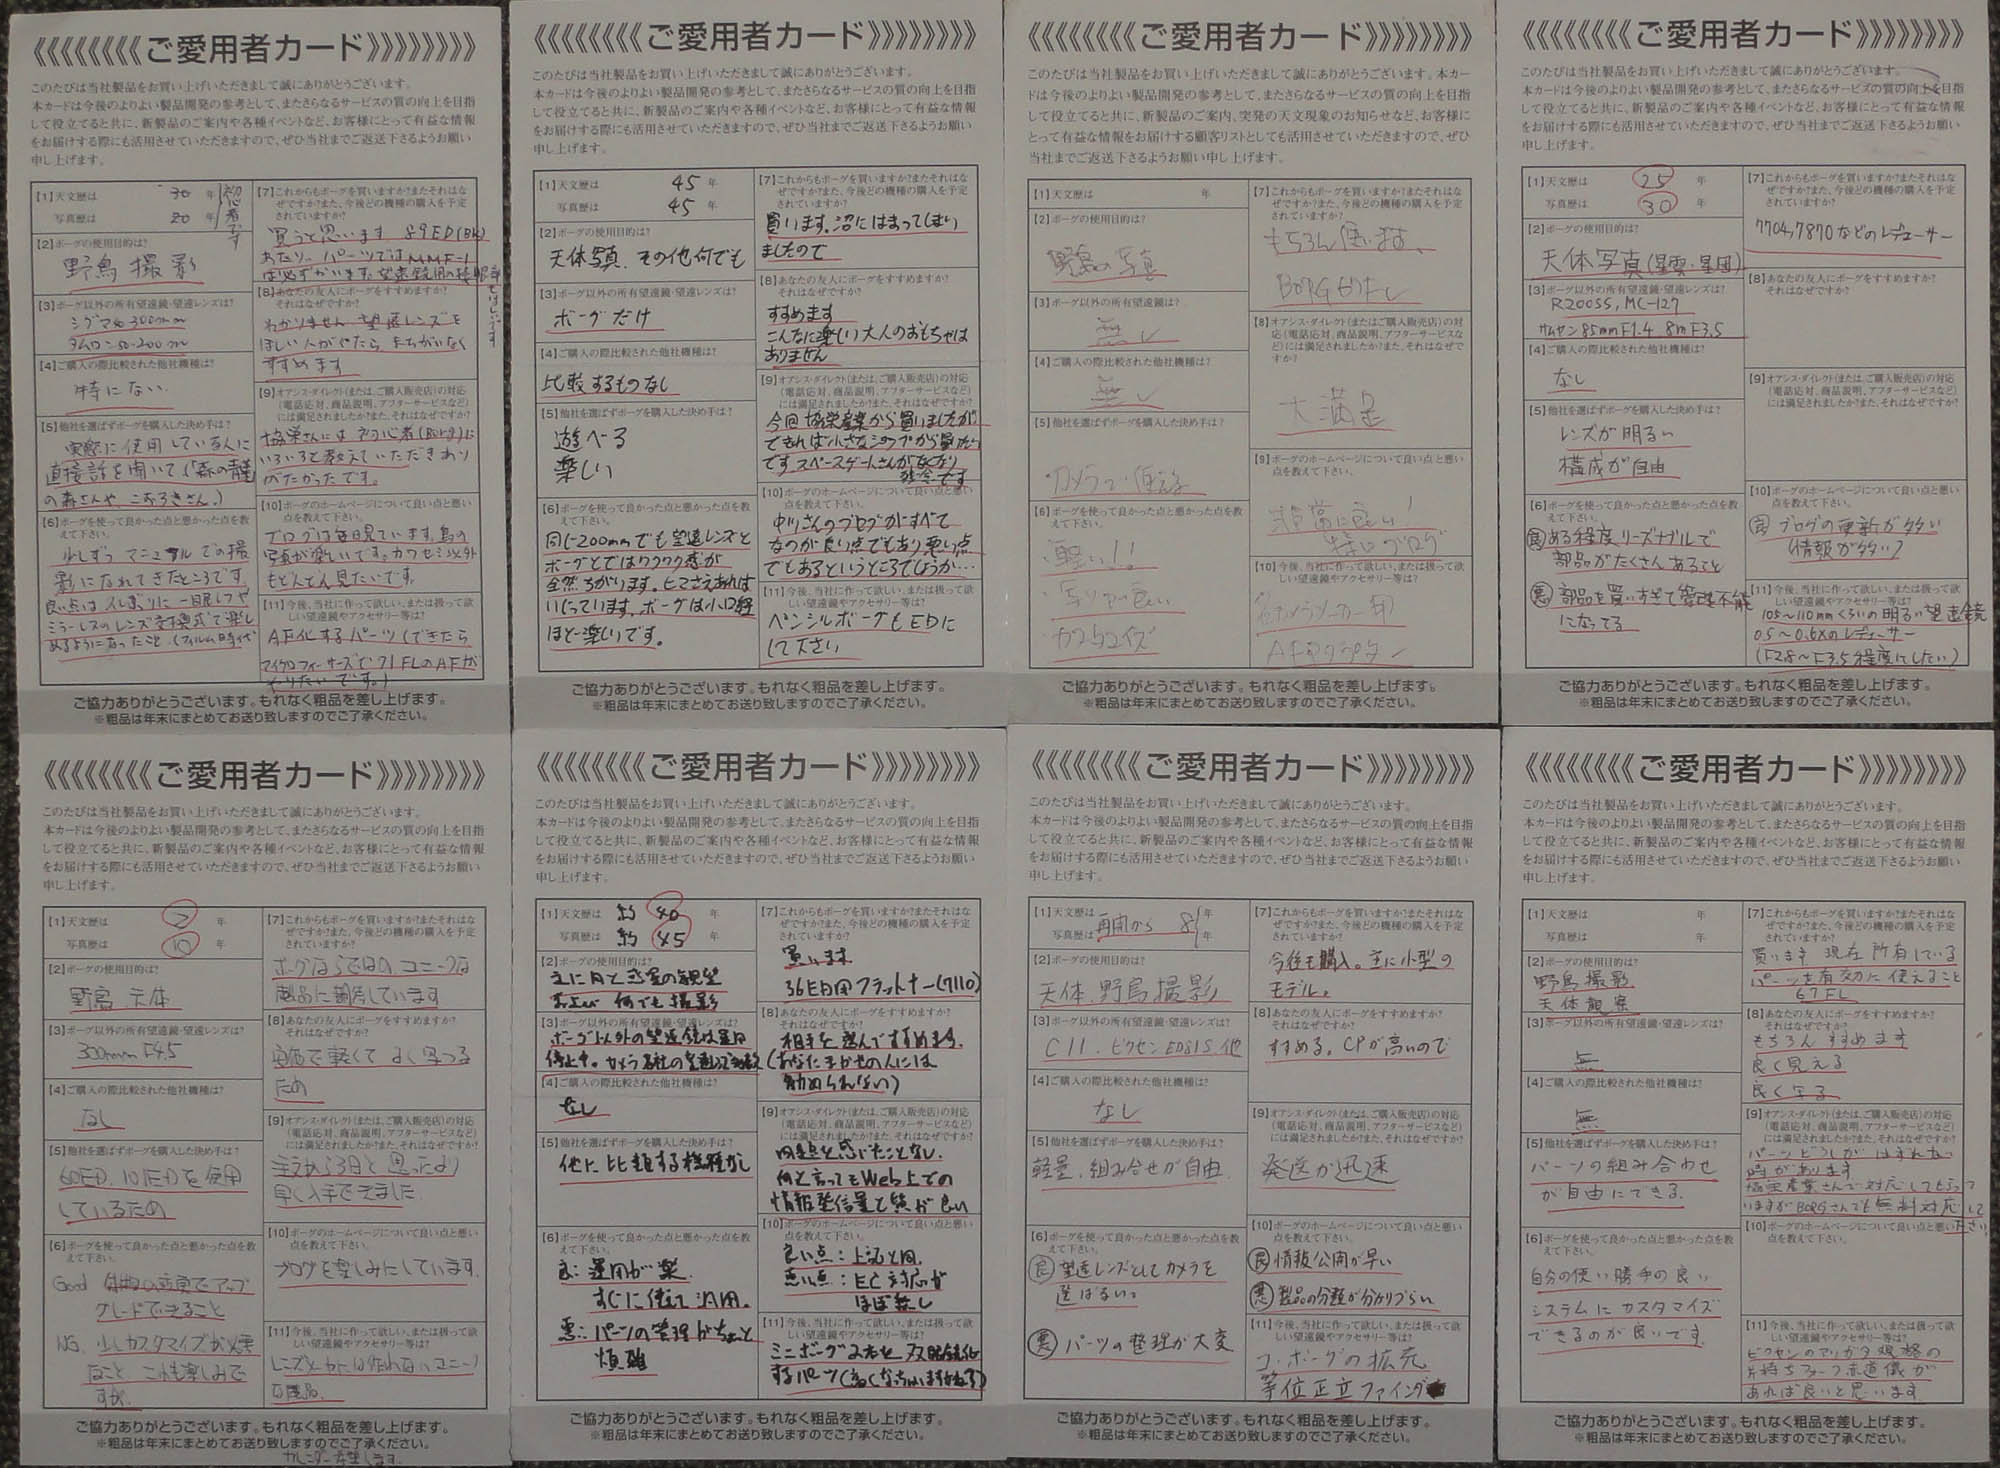 《《《《《《《《ご愛用者カード》》》》》》》》
このたびは当社製品をお買い上げいただきまして誠にありがとうございます。
本カードは今後のよりよい製品開発の参考として、またさらなるサービスの質の向上を目指
して役立てると共に、新製品のご案内や各種イベントなど、お客様にとって有益な情報
をお届けする際にも活用させていただきますので、ぜひ当社までご返送下さるようお願い
申し上げます。
【1】天文歴は 30 年
写真歴は 20 年
初心者です
【2】ボーグの使用目的は?
野鳥撮影
【3】ボーグ以外の所有望遠鏡・望遠レンズは?
シグマ 300mm
タムロン50-200mm
【4】ご購入の際比較された他社機種は?
特にない
【5】他社を選ばずボーグを購入した決め手は?
実際に使用している人に
直接話を聞いて(「森の青」
の森さんや こおろぎさん。)
【6】ボーグを使って良かった点と悪かった点を教
えて下さい。
少しずつマニュアルでの撮
影になれてきたところです。
良い点は 久しぶりに一眼レフや
ミラーレスのレンズ交換式で楽し
めるようになったこと。(フィルム時代
【7】これからもボーグを買いますか?またそれはな
ぜですか?また、今後どの機種の購入を予定
されていますか?
買うと思います 89ED(BK)
あたり。パーツではMMF-1
は必ずかいます。望遠鏡用の接眼部
がほしいです
【8】あなたの友人にボーグをすすめますか?
それはなぜですか?
わかりません 望遠レンズを
ほしい人がいたら まちがいなく
すすめます
【9】オアシス・ダイレクト(または、ご購入販売店)の対応
(電話応対、商品説明、アフターサービスなど)
には満足されましたか?また、それはなぜですか?
協栄さんには 初心者(Borg)に
いろいろと教えていただきあり
がたかったです。
【10】ボーグのホームページについて良い点と悪い
点を教えて下さい。
ブログは毎日見ています。鳥の
写真が楽しいです。カワセミ以外
もどんどん見たいです。
【11】今後、当社に作って欲しい、または扱って欲
しい望遠鏡やアクセサリー等は?
AF化するパーツ(できたら
マイクロフォーサーズで71FLのAFが
やりたいです。)
ご協力ありがとうございます。もれなく粗品を差し上げます。
※粗品は年末にまとめてお送り致しますのでご了承ください。
《《《《《《《《ご愛用者カード》》》》》》》》
このたびは当社製品をお買い上げいただきまして誠にありがとうございます。
本カードは今後のよりよい製品開発の参考として、またさらなるサービスの質の向上を目指
して役立てると共に、新製品のご案内や各種イベントなど、お客様にとって有益な情報
をお届けする際にも活用させていただきますので、ぜひ当社までご返送下さるようお願い
申し上げます。
【1】天文歴は 45 年
写真歴は 45 年
【2】ボーグの使用目的は?
天体写真、その他何でも
【3】ボーグ以外の所有望遠鏡・望遠レンズは?
ボーグだけ
【4】ご購入の際比較された他社機種は?
比較するものなし
【5】他社を選ばずボーグを購入した決め手は?
遊べる
楽しい
【6】ボーグを使って良かった点と悪かった点を教
えて下さい。
同じ200mmでも望遠レンズと
ボーグとではワクワク感が
全然ちがいます。ヒマさえあれば
いじっています。ボーグは小口径
ほど楽しいです。
【7】これからもボーグを買いますか?またそれはな
ぜですか?また、今後どの機種の購入を予定
されていますか?
買います。沼にはまってしまい
ましたので
【8】あなたの友人にボーグをすすめますか?
それはなぜですか?
すすめます
こんなに楽しい大人のおもちゃは
ありません
【9】オアシス・ダイレクト(または、ご購入販売店)の対応
(電話応対、商品説明、アフターサービスなど)
には満足されましたか?また、それはなぜですか?
今回協栄産業から買いましたが
できれば小さなショップから買いたい
です。スペースゲートさんがなくなり
残念です
【10】ボーグのホームページについて良い点と悪い
点を教えて下さい。
中川さんのブログがすべて
なのが良い点でもあり悪い点
でもあるというところでしょうか…
【11】今後、当社に作って欲しい、または扱って欲
しい望遠鏡やアクセサリー等は?
ペンシルボーグもEDに
して下さい
ご協力ありがとうございます。もれなく粗品を差し上げます。
※粗品は年末にまとめてお送り致しますのでご了承ください。
《《《《《《《《ご愛用者カード》》》》》》》》
このたびは当社製品をお買い上げいただきまして誠にありがとうございます。本カー
ドは今後のよりよい製品開発の参考として、またさらなるサービスの質の向上を目指し
て役立てると共に、新製品のご案内、突発の天文現象のお知らせなど、お客様にとっ
て有益な情報をお届けする顧客リストとしても活用させていただきますので、ぜひ
当社までご返送下さるようお願い申し上げます。
【1】天文歴は 年
【2】ボーグの使用目的は?
野鳥の写真
【3】ボーグ以外の所有望遠鏡は?
無し
【4】ご購入の際比較された他社機種は?
無し
【5】他社を選ばずボーグを購入した決め手は?
カメラで使える
【6】ボーグを使って良かった点と悪かった点を教
えて下さい。
・軽い!!
・写りが良い
・カスタマイズ
【7】これからもボーグを買いますか?またそれはな
ぜですか?また、今後どの機種の購入を予定
されていますか?
もちろん買います、
BORG
【8】オアシス・ダイレクト(またはご購入販売店)の対
応(電話応対、商品説明、アフターサービスな
ど)には満足されましたか?また、それはなぜで
すか?
大満足
【9】ボーグのホームページについて良い点と悪い
点を教えて下さい。
非常に良い!
特にブログ
【10】今後、当社に作って欲しい、または扱って欲
しい望遠鏡やアクセサリー等は?
各カメラメーカー用
AFアダプター
ご協力ありがとうございます。もれなく粗品を差し上げます。
※粗品は年末にまとめてお送り致しますのでご了承ください。
《《《《《《《《ご愛用者カード》》》》》》》》
このたびは当社製品をお買い上げいただきまして誠にありがとうございます。
本カードは今後のよりよい製品開発の参考として、またさらなるサービスの質の向上を目指
して役立てると共に、新製品のご案内や各種イベントなど、お客様にとって有益な情報
をお届けする際にも活用させていただきますので、ぜひ当社までご返送下さるようお願い
申し上げます。
【1】天文歴は 25 年
写真歴は 30 年
【2】ボーグの使用目的は?
天体写真(星雲・星団)
【3】ボーグ以外の所有望遠鏡・望遠レンズは?
R200SS, MC-127
サムヤン85mmF1.4 8mF3.5
【4】ご購入の際比較された他社機種は?
なし
【5】他社を選ばずボーグを購入した決め手は?
レンズが明るい
構成が自由
【6】ボーグを使って良かった点と悪かった点を教
えて下さい。
良 ある程度リーズナブルで
部品がたくさんあること
悪 部品を買いすぎて管理不能
になってる
【7】これからもボーグを買いますか?またそれはな
ぜですか?また、今後どの機種の購入を予定
されていますか?
7704,7870などのレデューサー
【8】あなたの友人にボーグをすすめますか?
それはなぜですか?
【9】オアシス・ダイレクト(または、ご購入販売店)の対応
(電話応対、商品説明、アフターサービスなど)
には満足されましたか?また、それはなぜですか?
【10】ボーグのホームページについて良い点と悪い
点を教えて下さい。
良 ブログの更新が多い
(情報が多い)
【11】今後、当社に作って欲しい、または扱って欲
しい望遠鏡やアクセサリー等は?
105~110mmくらいの明るい望遠鏡
0.5~0.6xのレデューサー
(F2.8~F3.5程度にしたい)
ご協力ありがとうございます。もれなく粗品を差し上げます。
※粗品は年末にまとめてお送り致しますのでご了承ください。
《《《《《《《《ご愛用者カード》》》》》》》》
このたびは当社製品をお買い上げいただきまして誠にありがとうございます。
本カードは今後のよりよい製品開発の参考として、またさらなるサービスの質の向上を目指
して役立てると共に、新製品のご案内や各種イベントなど、お客様にとって有益な情報
をお届けする際にも活用させていただきますので、ぜひ当社までご返送下さるようお願い
申し上げます。
【1】天文歴は 2 年
写真歴は 10 年
【2】ボーグの使用目的は?
野鳥 天体
【3】ボーグ以外の所有望遠鏡・望遠レンズは?
300mm F4.5
【4】ご購入の際比較された他社機種は?
なし
【5】他社を選ばずボーグを購入した決め手は?
60ED, 101EDを使用
しているため
【6】ボーグを使って良かった点と悪かった点を教
えて下さい。
Good 部品の変更でアップ
グレードできること
NG. 少しカスタマイズが必要
なこと これも楽しみで
すが。
【7】これからもボーグを買いますか?またそれはな
ぜですか?また、今後どの機種の購入を予定
されていますか?
ボーグならではのユニークな
製品に期待しています
【8】あなたの友人にボーグをすすめますか?
それはなぜですか?
安価で軽くてよく写る
ため
【9】オアシス・ダイレクト(または、ご購入販売店)の対応
(電話応対、商品説明、アフターサービスなど)
には満足されましたか?また、それはなぜですか?
注文から3日と思ったより
早く入手できました
【10】ボーグのホームページについて良い点と悪い
点を教えて下さい。
ブログを楽しみにしています。
【11】今後、当社に作って欲しい、または扱って欲
しい望遠鏡やアクセサリー等は?
レンズメーカーには作れないユニーク
な製品。
ご協力ありがとうございます。もれなく粗品を差し上げます。
※粗品は年末にまとめてお送り致しますのでご了承ください。
カレンダー希望します。
《《《《《《《《ご愛用者カード》》》》》》》》
このたびは当社製品をお買い上げいただきまして誠にありがとうございます。
本カードは今後のよりよい製品開発の参考として、またさらなるサービスの質の向上を目指
して役立てると共に、新製品のご案内や各種イベントなど、お客様にとって有益な情報
をお届けする際にも活用させていただきますので、ぜひ当社までご返送下さるようお願い
申し上げます。
【1】天文歴は 約 40 年
写真歴は 約 45 年
【2】ボーグの使用目的は?
主に月と惑星の観望
および 何でも撮影
【3】ボーグ以外の所有望遠鏡・望遠レンズは?
ボーグ以外の望遠鏡は冬眠
停止中。カメラ各社の望遠レンズ多数
【4】ご購入の際比較された他社機種は?
なし
【5】他社を選ばずボーグを購入した決め手は?
他に比類する機種なし
【6】ボーグを使って良かった点と悪かった点を教
えて下さい。
良:運用が楽。
すぐに使えて汎用。
悪:パーツの管理がちょっと
煩雑
【7】これからもボーグを買いますか?またそれはな
ぜですか?また、今後どの機種の購入を予定
されていますか?
買います
36ED用フラットナー(7110)
【8】あなたの友人にボーグをすすめますか?
それはなぜですか?
相手を選んですすめます。
(あなたまかせの人には
勧められない)
【9】オアシス・ダイレクト(または、ご購入販売店)の対応
(電話応対、商品説明、アフターサービスなど)
には満足されましたか?また、それはなぜですか?
問題点を感じたことなし。
何と言ってもWeb上での
情報発信量と質が良い
【10】ボーグのホームページについて良い点と悪い
点を教えて下さい。
良い点:上記と同。
悪い点:EC対応が
ほぼ無し
【11】今後、当社に作って欲しい、または扱って欲
しい望遠鏡やアクセサリー等は?
ミニボーグ2本を双眼鏡化
するパーツ(高くなっちゃいますかね?)
ご協力ありがとうございます。もれなく粗品を差し上げます。
※粗品は年末にまとめてお送り致しますのでご了承ください。
《《《《《《《《ご愛用者カード》》》》》》》》
このたびは当社製品をお買い上げいただきまして誠にありがとうございます。
本カードは今後のよりよい製品開発の参考として、またさらなるサービスの質の向上を目指
して役立てると共に、新製品のご案内や各種イベントなど、お客様にとって有益な情報
をお届けする際にも活用させていただきますので、ぜひ当社までご返送下さるようお願い
申し上げます。
【1】天文歴は 年
写真歴は 再開から 8 年
【2】ボーグの使用目的は?
天体、野鳥撮影
【3】ボーグ以外の所有望遠鏡・望遠レンズは?
C11. ビクセンED81S. 他
【4】ご購入の際比較された他社機種は?
なし
【5】他社を選ばずボーグを購入した決め手は?
軽量、組み合せが自由
【6】ボーグを使って良かった点と悪かった点を教
えて下さい。
良 望遠レンズとしてカメラを
選ばない。
悪 パーツの整理が大変
【7】これからもボーグを買いますか?またそれはな
ぜですか?また、今後どの機種の購入を予定
されていますか?
今後も購入。主に小型の
モデル。
【8】あなたの友人にボーグをすすめますか?
それはなぜですか?
すすめる。CPが高いので
【9】オアシス・ダイレクト(または、ご購入販売店)の対応
(電話応対、商品説明、アフターサービスなど)
には満足されましたか?また、それはなぜですか?
発送が迅速
【10】ボーグのホームページについて良い点と悪い
点を教えて下さい。
良 情報公開が早い
悪 製品の分類が分かりづらい
【11】今後、当社に作って欲しい、または扱って欲
しい望遠鏡やアクセサリー等は?
コ・ボーグの拡充
等位正立ファインダー
ご協力ありがとうございます。もれなく粗品を差し上げます。
※粗品は年末にまとめてお送り致しますのでご了承ください。
《《《《《《《《ご愛用者カード》》》》》》》》
このたびは当社製品をお買い上げいただきまして誠にありがとうございます。
本カードは今後のよりよい製品開発の参考として、またさらなるサービスの質の向上を目指
して役立てると共に、新製品のご案内や各種イベントなど、お客様にとって有益な情報
をお届けする際にも活用させていただきますので、ぜひ当社までご返送下さるようお願い
申し上げます。
【1】天文歴は 年
写真歴は 年
【2】ボーグの使用目的は?
野鳥撮影
天体観察
【3】ボーグ以外の所有望遠鏡・望遠レンズは?
無
【4】ご購入の際比較された他社機種は?
無
【5】他社を選ばずボーグを購入した決め手は?
パーツの組み合わせ
が自由にできる.
【6】ボーグを使って良かった点と悪かった点を教
えて下さい。
自分の使い勝手の良い
システムにカスタマイズ
できるのが良いです.
【7】これからもボーグを買いますか?またそれはな
ぜですか?また、今後どの機種の購入を予定
されていますか?
買います 現在所有している
パーツを有効に使えること
67FL
【8】あなたの友人にボーグをすすめますか?
それはなぜですか?
もちろんすすめます
良く見える
良く写る
【9】オアシス・ダイレクト(または、ご購入販売店)の対応
(電話応対、商品説明、アフターサービスなど)
には満足されましたか?また、それはなぜですか?
パーツどうしがはずれない
時があります
協栄産業さんで対応してもらって
いますがBORGさんでも無料対応して
下さい
【10】ボーグのホームページについて良い点と悪い
点を教えて下さい。
【11】今後、当社に作って欲しい、または扱って欲
しい望遠鏡やアクセサリー等は?
ビクセンのアリガタ規格の
片持ちフォーク赤道儀が
あれば良いと思います
ご協力ありがとうございます。もれなく粗品を差し上げます。
※粗品は年末にまとめてお送り致しますのでご了承ください。